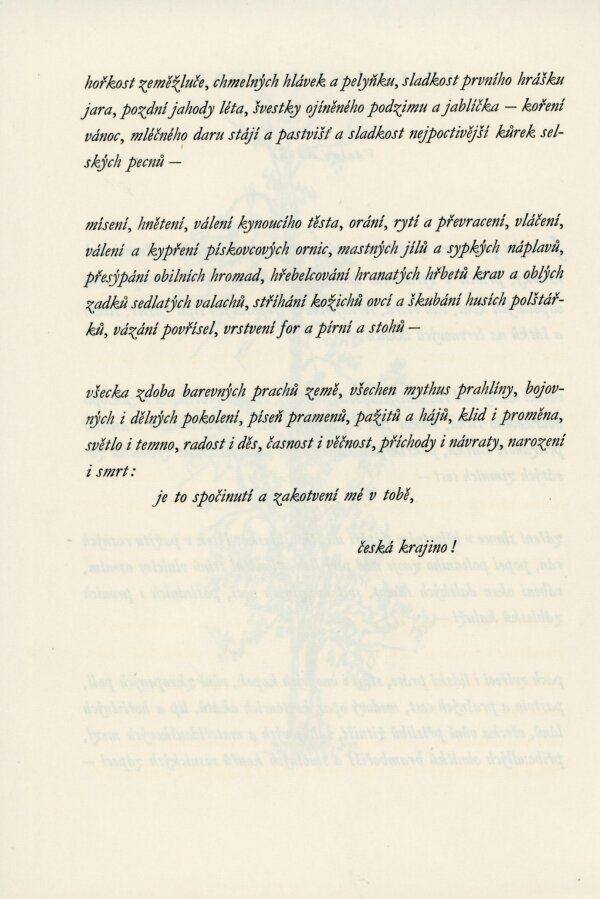 hořkost zeměžluče, chmelných hlávek a pelyňku, sladkost prvního hrášku
jara, pozdní jahody léta, švestky ojíněného podzimu a jablíčka — koření
vánoc, mléčného daru stájí a pastvišť a sladkost nejpoctivější kůrek sel-
ských pecnů —
mísení, hnětení, válení kynoucího těsta, orání, rytí a převracení, vláčení,
válení a kypření pískovcových ornic, mastných jílů a sypkých náplavů,
přesýpání obilních hromad, hřebelcování hranatých hřbetů krav a oblých
zadků sedlatých valachů, stříhání kožichů ovcí a škubání husích polštář-
ků, vázání povřísel, vrstvení for a pírní a stohů —
všecka zdoba barevných prachů země, všechen mythus prahlíny, bojov-
ných i dělných pokolení, píseň pramenů, pažitů a hájů, klid i proměna,
světlo i temno, radost i děs, časnost i věčnost, příchody i návraty, narození
i smrt :
je to spočinutí a zakotvení mé v tobě,
česká krajino !